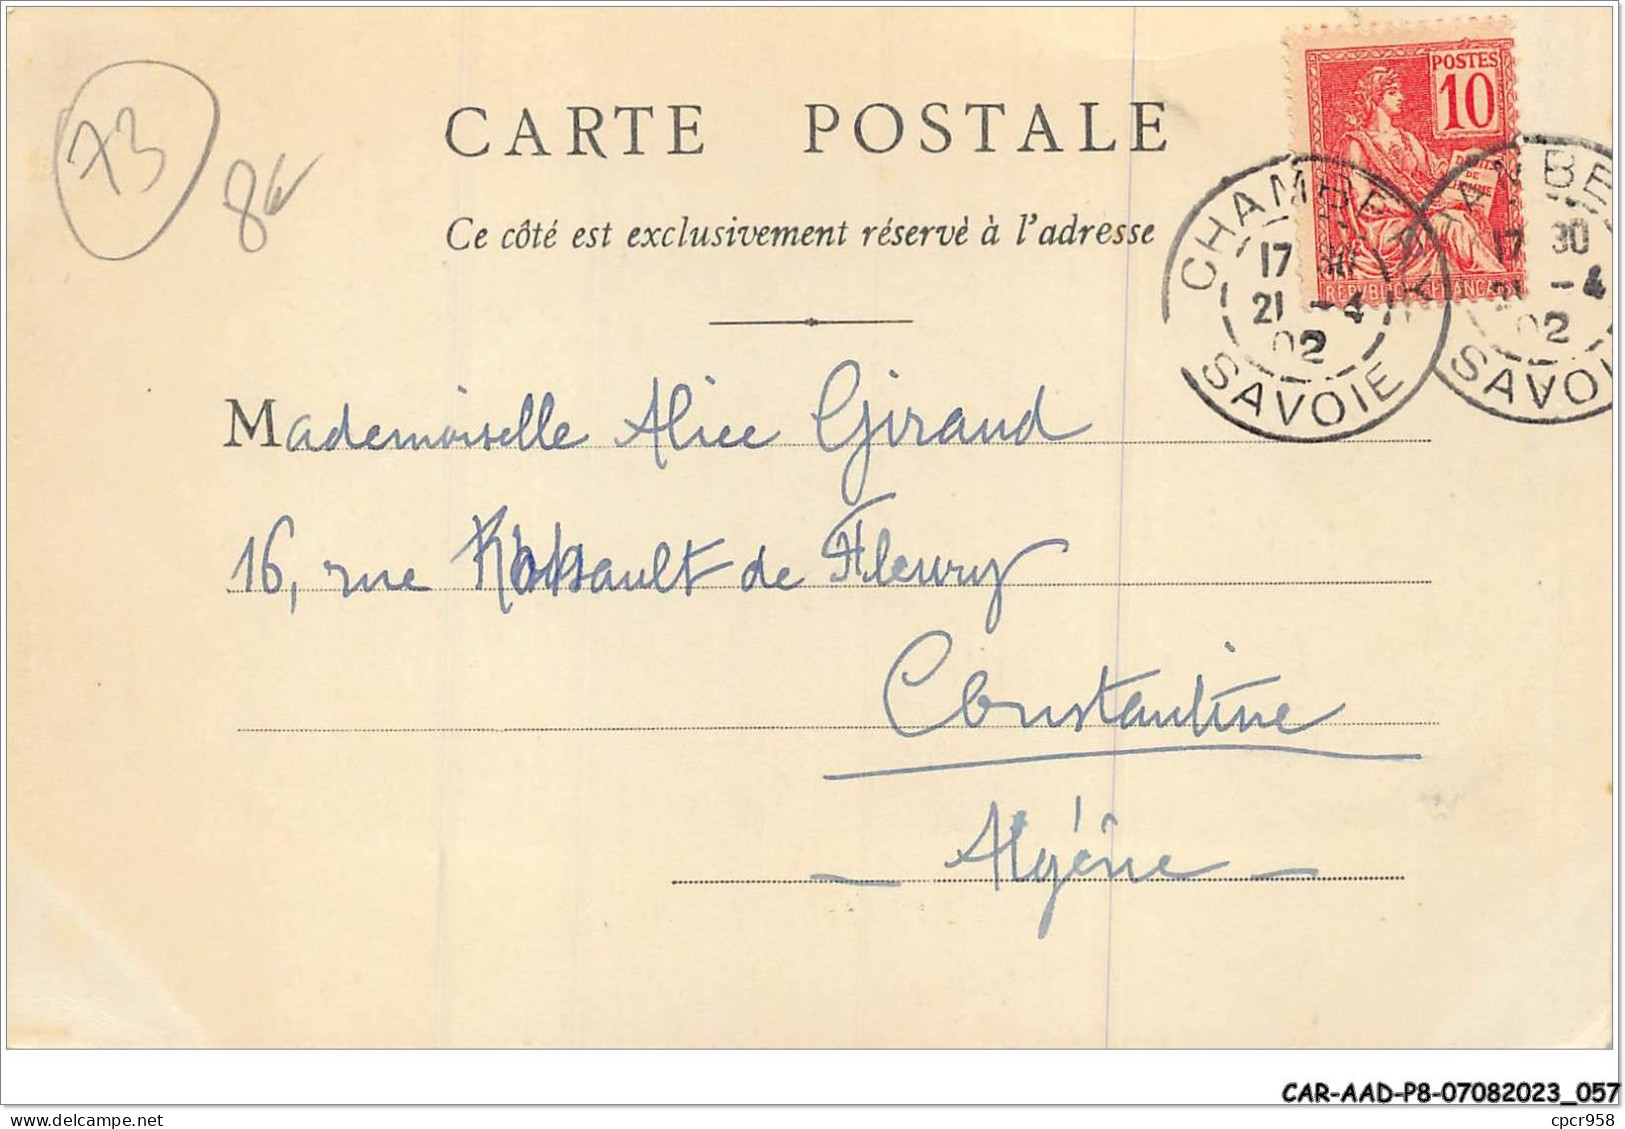 73
8€
CARTE POSTALE
Ce côté est exclusivement réservè à l'adresse
POSTES
10
DROITS
DE
HOMME
REPUBLIQUE FRANCAISE
CHAMBERY
17 30
21 -4
02
SAVOIE
17 30
21 -4
02
SAVOI
Mademoiselle Alice Giraud
16, rue Rohault de Fleury
Constantine
- Algérie -
CAR-AAD-P8-07082023_057
cpcr958